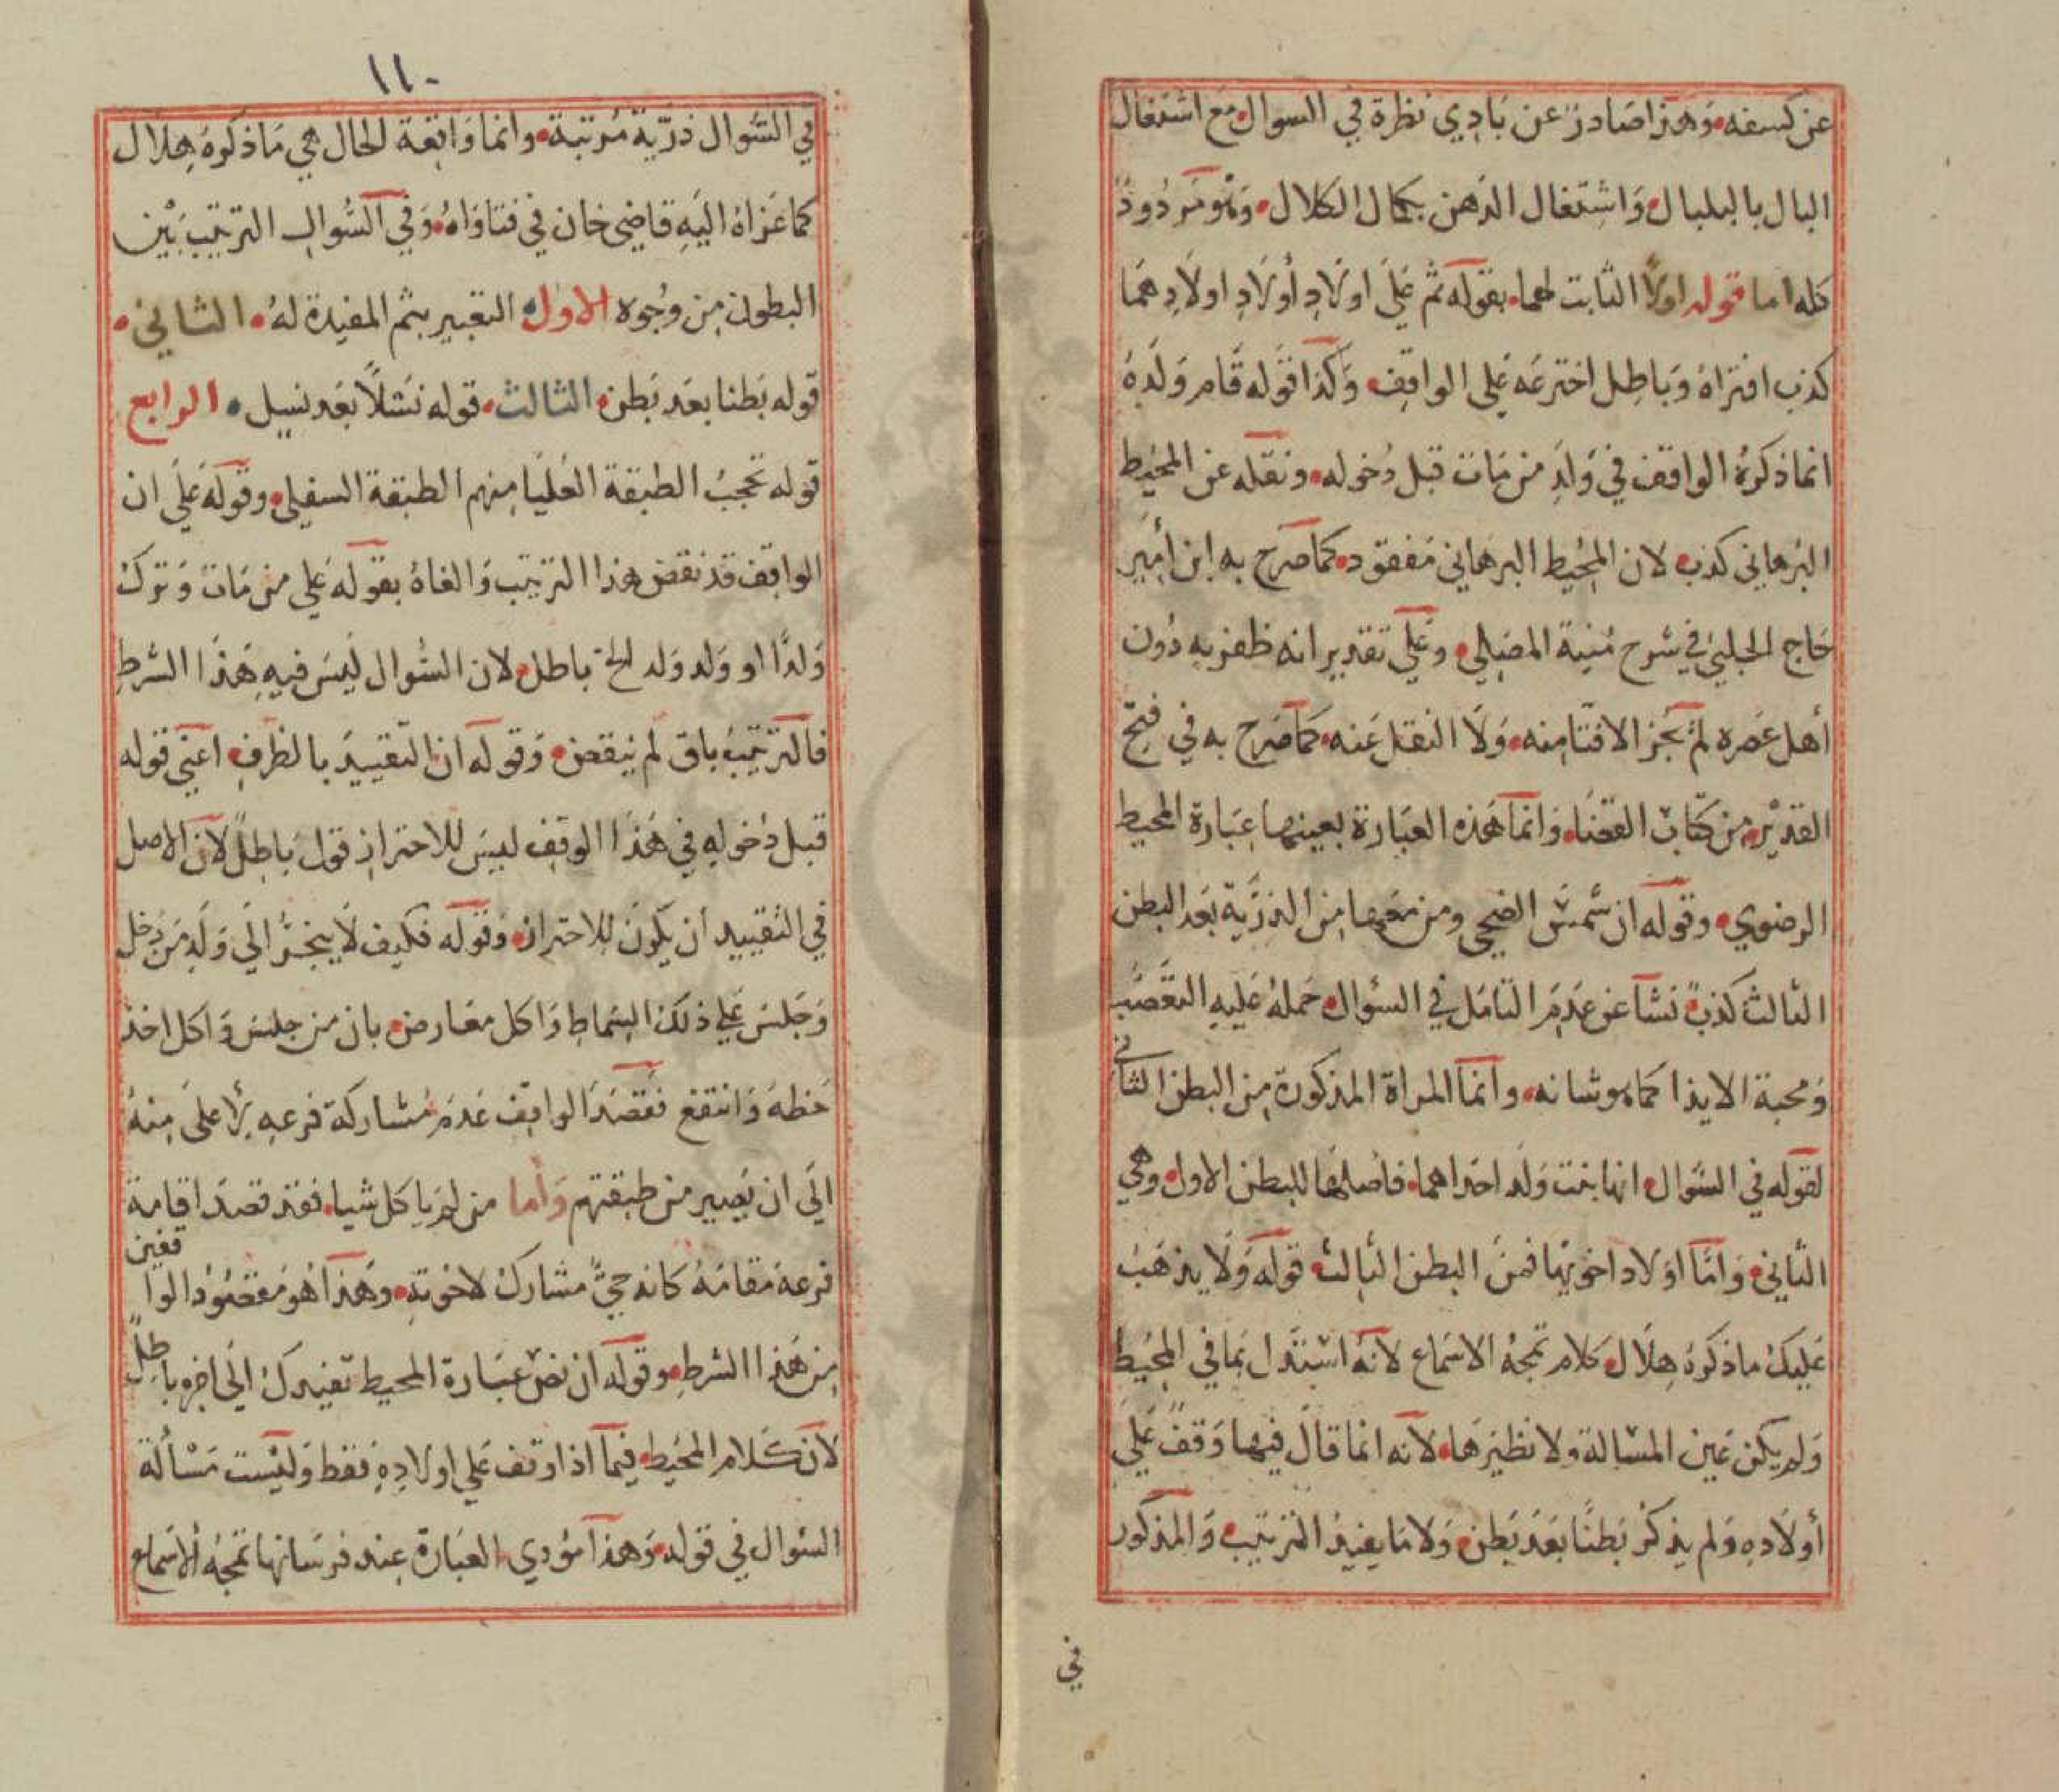 عن كسفه وهذا صادر عن بادي نظرة في السوال مع اشتغال
البال بالبلبال وَاشتغال الذهن بكمال الكلال وَهو مَردُودٌ
كله اما قوله اولاً الثابت لهما بقوله ثم عَلَى اولَادِ أولَادِ اولَادِهمَا
كذب افتراهُ وَباطِل اخترعَه عَلى الواقِف وَكذا قوله قَام وَلَدهُ
انما ذكرهُ الواقف في وَلَدِ من مَات قبل دُخوله ونقله عن المحيط
البُرهاني كذب لان المحِيط البرهَاني مَفقود كما صَرح به ابن أمِير
حَاج الحلبي في شرح مُنية المصَلي وعَلى تقدير انه ظفر به دُون
أهل عَصره لم يَجُز الافتا منه وَلَا النقل عَنه كما صَرح به في فتح
القدير من كتاب القضَا وَانما هَذه العبَارة بعينها عبَارة المحيط
الرضوي وقوله ان شمسَ الضحى ومن معَها من الذرّية بَعد البطن
الثالث كذبٌ نشأ عن عَدَم التامل في السؤال حَملهُ عَليه التعَصُّب
وَمحبة الايذا كما هو شانه وانما المراة المذكورة من البطن الثاني
لقوله في السُّوال انها بنت وَلَد احدَاهما فأصلها للبطن الاول وهي
الثاني وَامَّا اولَاد اخوتها فمنَ البطن الثالث قوله وَلَا يذهَب
عَليك ما ذكرهُ هِلَال كلام تمجهُ الاسَماع لأنَّهُ اسْتَدل بمَا في المحِيط
وَلم يكن عَين المسَالة ولا نظيرهَا لأنه انما قال فيها وَقفٌ عَلَى
أولَادِه وَلم يذكر بَطنًا بَعدَ بَطن وَلا مَا يفيدُ الترتيب وَالمذكور
في
١١٠
في السُّوال ذرّية مُرتبة وانما وَاقِعة الحال هي مَا ذكرهُ هِلَال
كما عَزاهُ اليَهِ قاضِي خان في فتاوَاهُ وَفي السُّوال الترتيب بَيْن
البطون مِن وُجوه الاول التعبير بثم المفيدة لهُ الثاني
قوله بَطنا بعَد بَطن الثالث قوله نَسْلاً بعَد نسل الرابع
قوله تحجبُ الطبقة العُليَا مِنهم الطبقة السفلى وقوله عَلَى ان
الواقِف قد نقض هذا الترتيب وَالغاهُ بقوله عَلى من مَات وَترك
وَلدًا او وَلد وَلد الخ باطل لان السُّوال ليَس فيهِ هَذا الشرط
فالترتيبُ باقٍ لم ينقض وَقوله ان التقييدَ بالظرف اعني قوله
قبل دُخولهِ في هَذا الوقِف ليسَ للاحتراز قول بَاطِلٌ لأن الاصل
في التقييد أن يكونَ للاحتراز وَقوله فكيف لَا ينجرُّ الَي وَلَدِ مَن دَخل
وَجَلسَ عَلي ذلَكَ السِّماط وَاكل معَارض بان من جلسَ وَاكل اخذ
حَظه وَانتفع فقصَدَ الواقِف عَدمَ مُشاركة فرعهِ لأعلى مِنهُ
الَي ان يَصير من طبقتهم وَأما من لم يَاكل شيا فقد قصَدَ اقامة
فرعهِ مَقامَهُ كانه حيٌّ مشارك لاخوته وهَذا هُو مَقصُود الواقفين
مِن هَذا الشرط وقوله ان نصّ عبَارة المحيط تفيدك الَى اخره باطِلٌ
لأنَّ كَلَام المحَيط فيما اذا وقف عَلي اولَادِهِ فقط وَليَست مَسْألة
السُّوال في قوله وَهذا مؤدي العبَارة عِند فرسَانها تمجهُ الأسماع